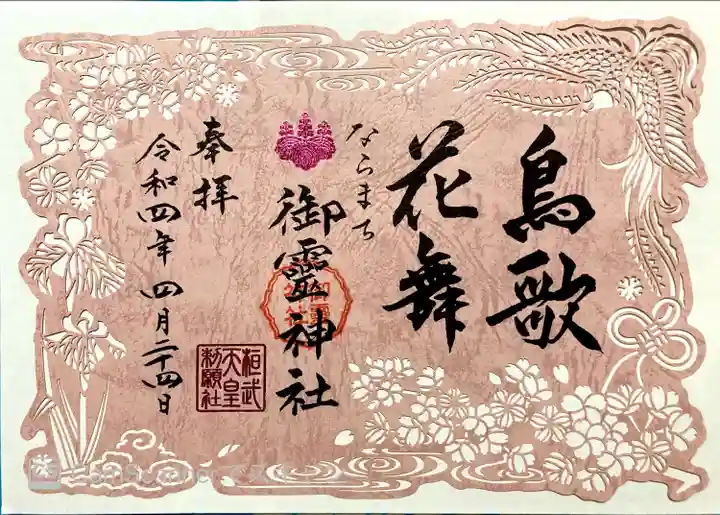 鳥歌
花舞
ならまち
御霊神社
御霊神社
桓武
天皇
勅願社
奉拝
令和四年四月二十四日